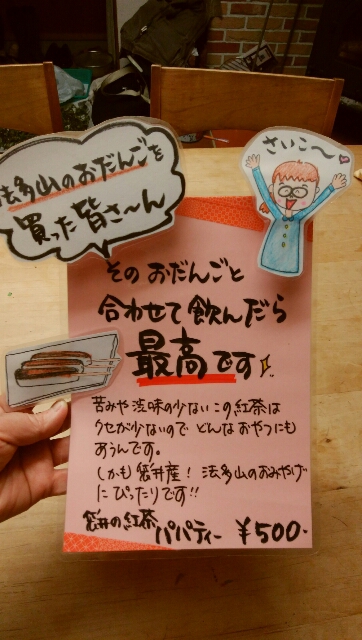 法多山のおだんごを
買った皆さ〜ん
さいこ〜
その おだんごと
合わせて 飲んだら
最高です
苦みや 渋味の少ない この紅茶は
クセが少ないので どんなおやつにも
あうんです。
しかも 袋井産! 法多山のおみやげ
に ぴったりです!!
袋井の紅茶
パパティー ¥500-